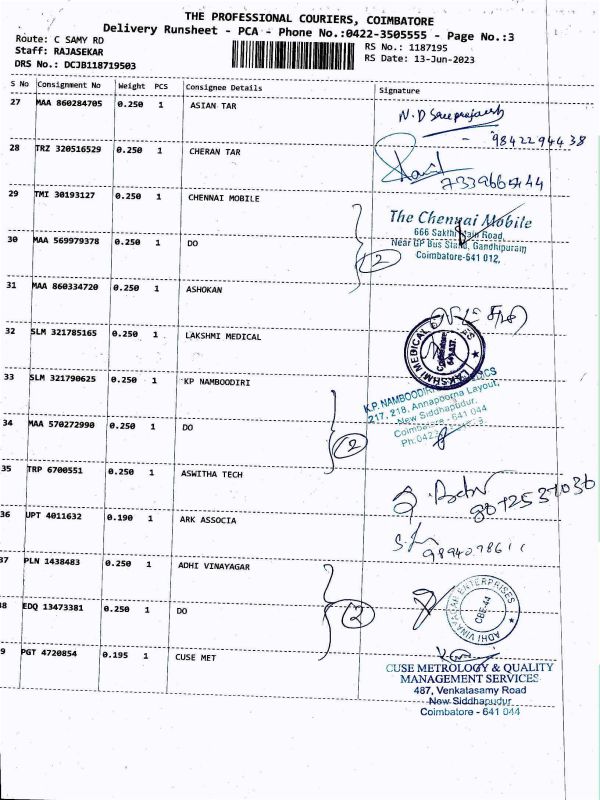 THE PROFESSIONAL COURIERS, COIMBATORE
Delivery Runsheet - PCA - Phone No.:0422-3505555 - Page No.:3
Route: C SAMY RD
Staff: RAJASEKAR
DRS No.: DCJB118719503
RS No.: 1187195
RS Date: 13-Jun-2023
S No Consignment No Weight PCS Consignee Details Signature
27 MAA 860284705 0.250 1 ASIAN TAR
9842294438
28 TRZ 320516529 0.250 1 CHERAN TAR
29 TMI 30193127 0.250 1 CHENNAI MOBILE
The Chennai Mobile
666 Sakthi Main Road,
Near GP Bus Stand, Gandhipuram
Coimbatore-641 012.
30 MAA 569979378 0.250 1 DO
2
31 MAA 860334720 0.250 1 ASHOKAN
32 SLM 321785165 0.250 1 LAKSHMI MEDICAL
LAKSHMI MEDICAL
33 SLM 321790625 0.250 1 KP NAMBOODIRI
K.P. NAMBOODIRI
217, 218, Annapoorna Layout,
New Siddhapudur,
Coimbatore - 641 044
34 MAA 570272990 0.250 1 DO
2
35 TRP 6700551 0.250 1 ASWITHA TECH
36 UPT 4011632 0.190 1 ARK ASSOCIA
37 PLN 1438483 0.250 1 ADHI VINAYAGAR
ADHI VINAYAGAR ENTERPRISES
CBE-44
38 EDQ 13473381 0.250 1 DO
2
39 PGT 4720854 0.195 1 CUSE MET
CUSE METROLOGY & QUALITY
MANAGEMENT SERVICES
487, Venkatasamy Road
New Siddhapudur
Coimbatore - 641 044